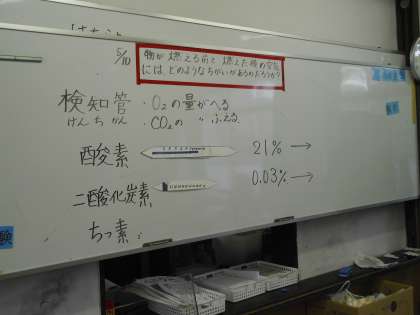 5/10
物が燃える前と燃えた後の空気
には、どのようなちがいがあるのだろうか?
検知管・O₂の量がへる
けんちかん・CO₂の 〃 ふえる
酸素 21% →
二酸化炭素 0.03% →
ちっ素
験